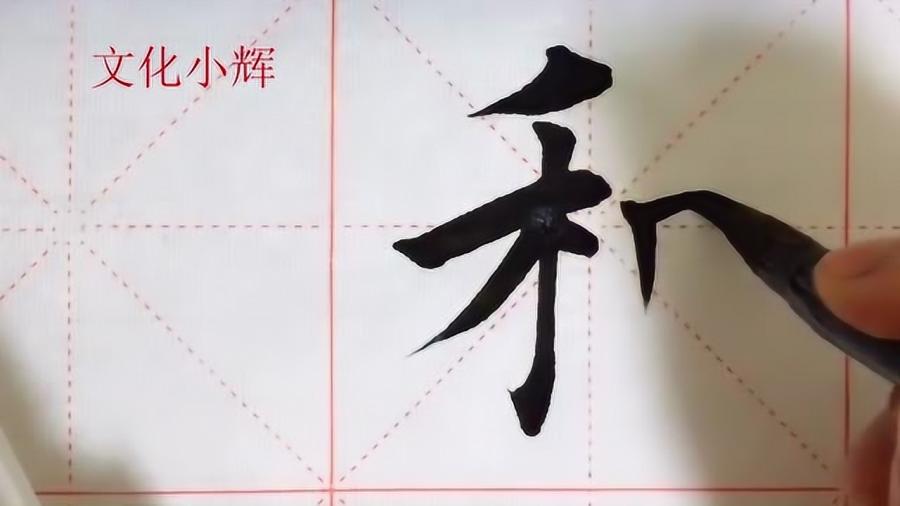 文化小辉
禾